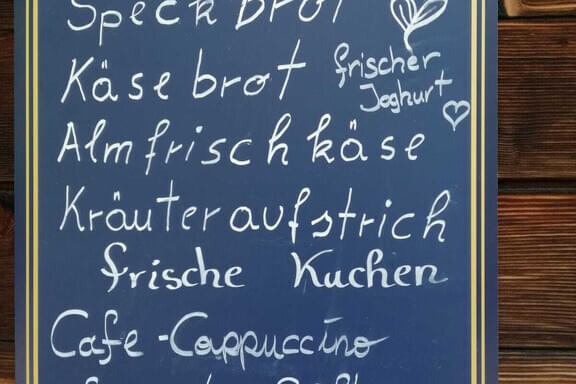 Speck brot
Käse brot
frischer
Joghurt
Almfrischkäse
Kräuteraufstrich
frische Kuchen
Cafe - Cappuccino